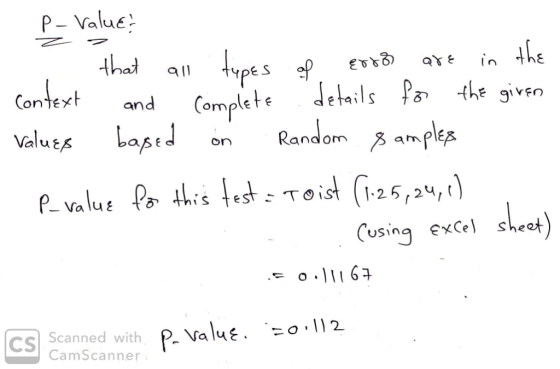 P- Value:
that all types of error are in the
Context and Complete details for the given
Values based on Random samples
P-value for this test = TDist (1.25,24,1)
(using Excel sheet)
= 0.11167
P-Value. =0.112
CS Scanned with
CamScanner